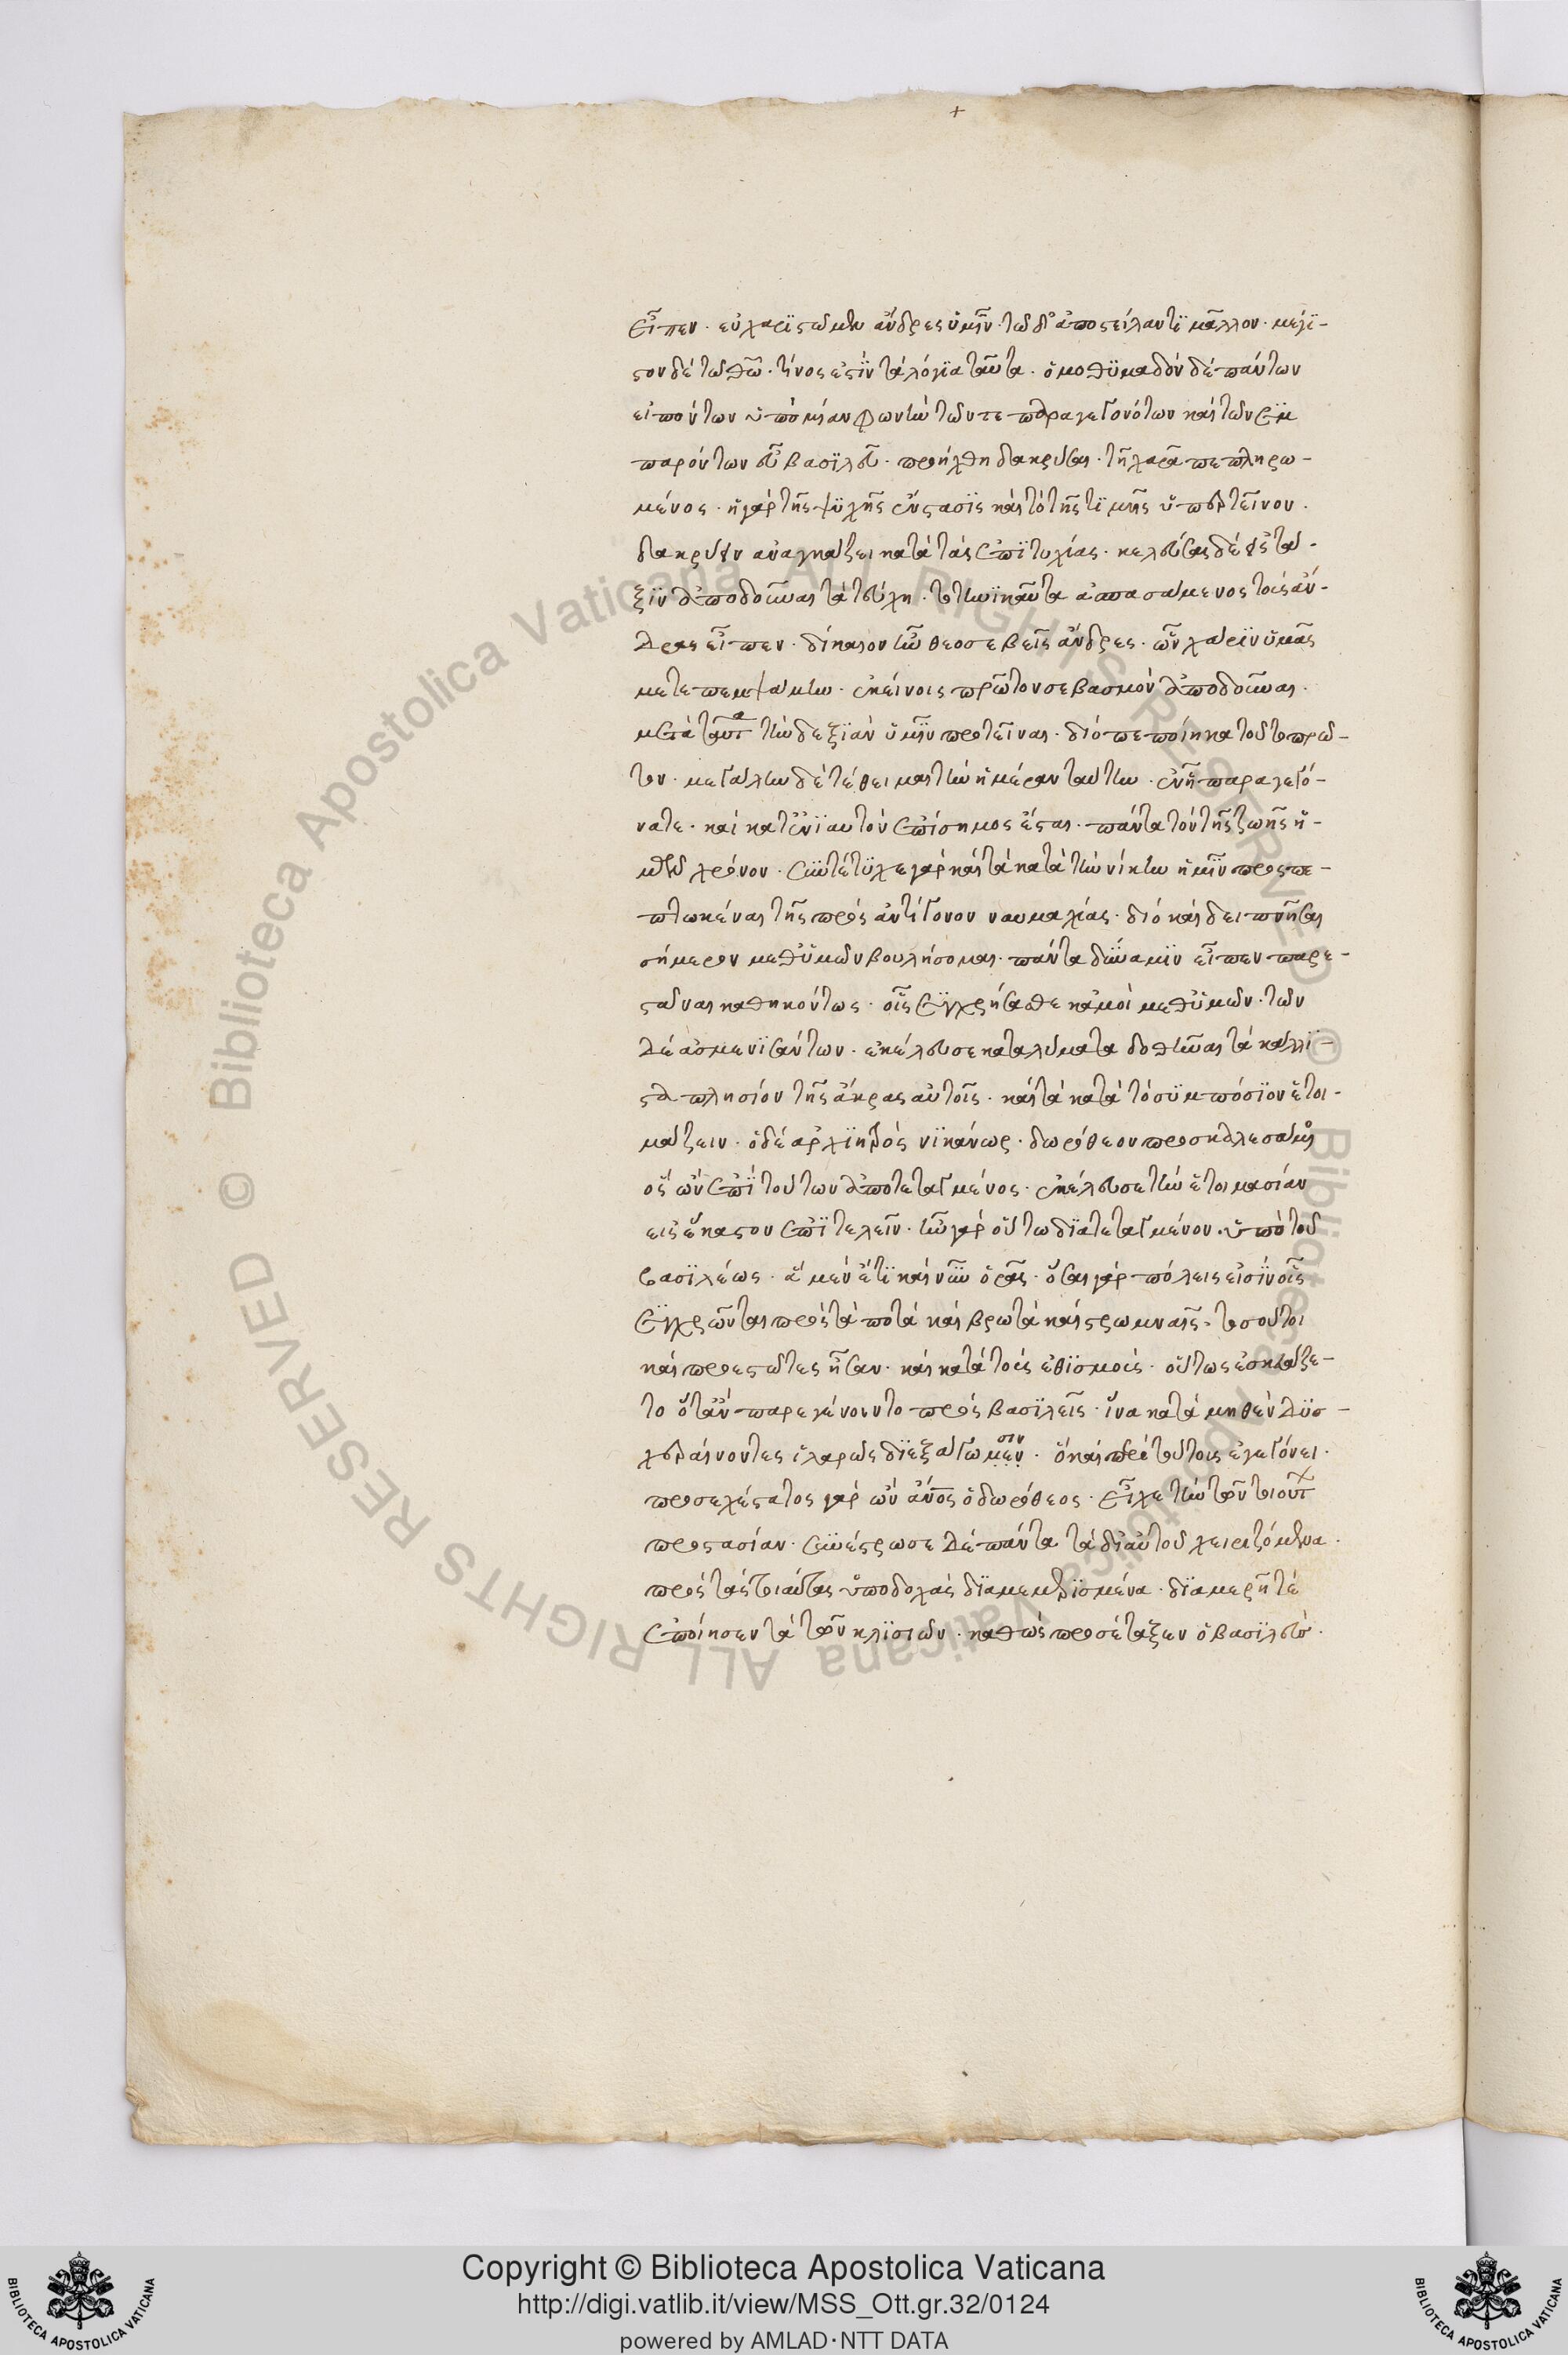 +
εἶπεν· εὐχαριστῶ μὲν ἄνδρες ὑμῖν· τῶ δ' ἀποστείλαντι μᾶλλον· μέγι-
στον δὲ τῶ θῶ· τίνος ἐστὶν τὰ λόγια ταῦτα· ὁμοθυμαδὸν δὲ πάντων
εἰπόντων ὑπὸ μίαν φωνὴν τῶν τε παραγεγονότων καὶ τῶν συμ
παρόντων εὖ βασιλεῦ· προήχθη δακρῦσαι· τῆ χαρᾶ πεπληρω-
μένος· ἡ γὰρ τῆς ψυχῆς ἔνστασις καὶ τὸ τῆς τιμῆς ὑπερτεῖνον·
δακρύειν ἀναγκάζει κατὰ τὰς ἐπιτυχίας· κελεύσας δὲ εἰς τά-
ξιν ἀποδοῦναι τὰ τεύχη· τὸ τηνικαῦτα ἀσπασάμενος τοὺς ἄν-
δρας εἶπεν· δίκαιον ἦν θεοσεβεῖς ἄνδρες· ὧν χάριν ὑμᾶς
μετεπεμψάμην· ἐκείνοις πρῶτον σεβασμὸν ἀποδοῦναι·
μετὰ ταῦτα τὴν δεξιὰν ὑμῖν προτεῖναι· διὸ πεποίηκα τοῦτο πρῶ-
τον· μεγάλην δὲ τέθειμαι τὴν ἡμέραν ταύτην· ἐν ἧ παραγεγό-
νατε· καὶ κατ' ἐνιαυτὸν ἐπίσημος ἔσται· πάντα τὸν τῆς ζωῆς ἡ-
μῶν χρόνον· συντέτυχε γὰρ καὶ τὰ κατὰ τὴν νίκην ἡμῖν προσπε-
πτωκέναι τῆς πρὸς ἀντίγονον ναυμαχίας· διὸ καὶ δειπνῆσαι
σήμερον μεθ' ὑμῶν βουλήσομαι· πάντα δύναμιν εἶπεν παρε-
στάναι καθηκόντως· οἷς συγχρήσασθε κἀμοὶ μεθ' ὑμῶν· τῶν
δὲ ἀσμενισάντων· ἐκέλευσε καταλύματα δοθῆναι τὰ κάλλι-
στα πλησίον τῆς ἄκρας αὐτοῖς· καὶ τὰ κατὰ τὸ συμπόσιον ἑτοι-
μάζειν· ὁ δὲ ἀρχιητρὸς νικάνωρ· δωρόθεον προσκαλεσάμενος
ὃς ἦν ἐπὶ τούτων ἀποτεταγμένος· ἐκέλευσε τὴν ἑτοιμασίαν
εἰς ἕκαστον ἐπιτελεῖν· ἦν γὰρ οὕτω διατεταγμένον· ὑπὸ τοῦ
βασιλέως· ἃ μὲν ἔτι καὶ νῦν ὁρᾶς· ὅσαι γὰρ πόλεις εἰσὶν οἷς
συγχρῶνται πρὸς τὰ ποτὰ καὶ βρωτὰ καὶ στρωμναῖς· τοσοῦτοι
καὶ προεστῶτες ἦσαν· καὶ κατὰ τοὺς ἐθισμοὺς· οὕτως ἐσκευάζε-
το ὅταν παρεγένοιντο πρὸς βασιλεῖς· ἵνα κατὰ μηθὲν δυσ-
χεραίνοντες ἱλαρῶς διεξάγωμεν σιν· ὃ καὶ περὶ τούτοις ἐγεγόνει·
προσεχέστατος γὰρ ὢν ἄνος ὁ δωρόθεος· εἶχε τὴν τῶν τοιούτ
προστασίαν· συνέστρωσε δὲ πάντα τὰ δι' αὐτοῦ χειριζόμενα·
πρὸς τὰς τοιαύτας ὑποδοχὰς διαμεμερισμένα· διαμερῆ τὲ
ἐποίησεν τὰ τῶν κλισιῶν· καθὼς προσέταξεν ὁ βασιλεὺς·
Copyright © Biblioteca Apostolica Vaticana
http://digi.vatlib.it/view/MSS_Ott.gr.32/0124
powered by AMLAD·NTT DATA